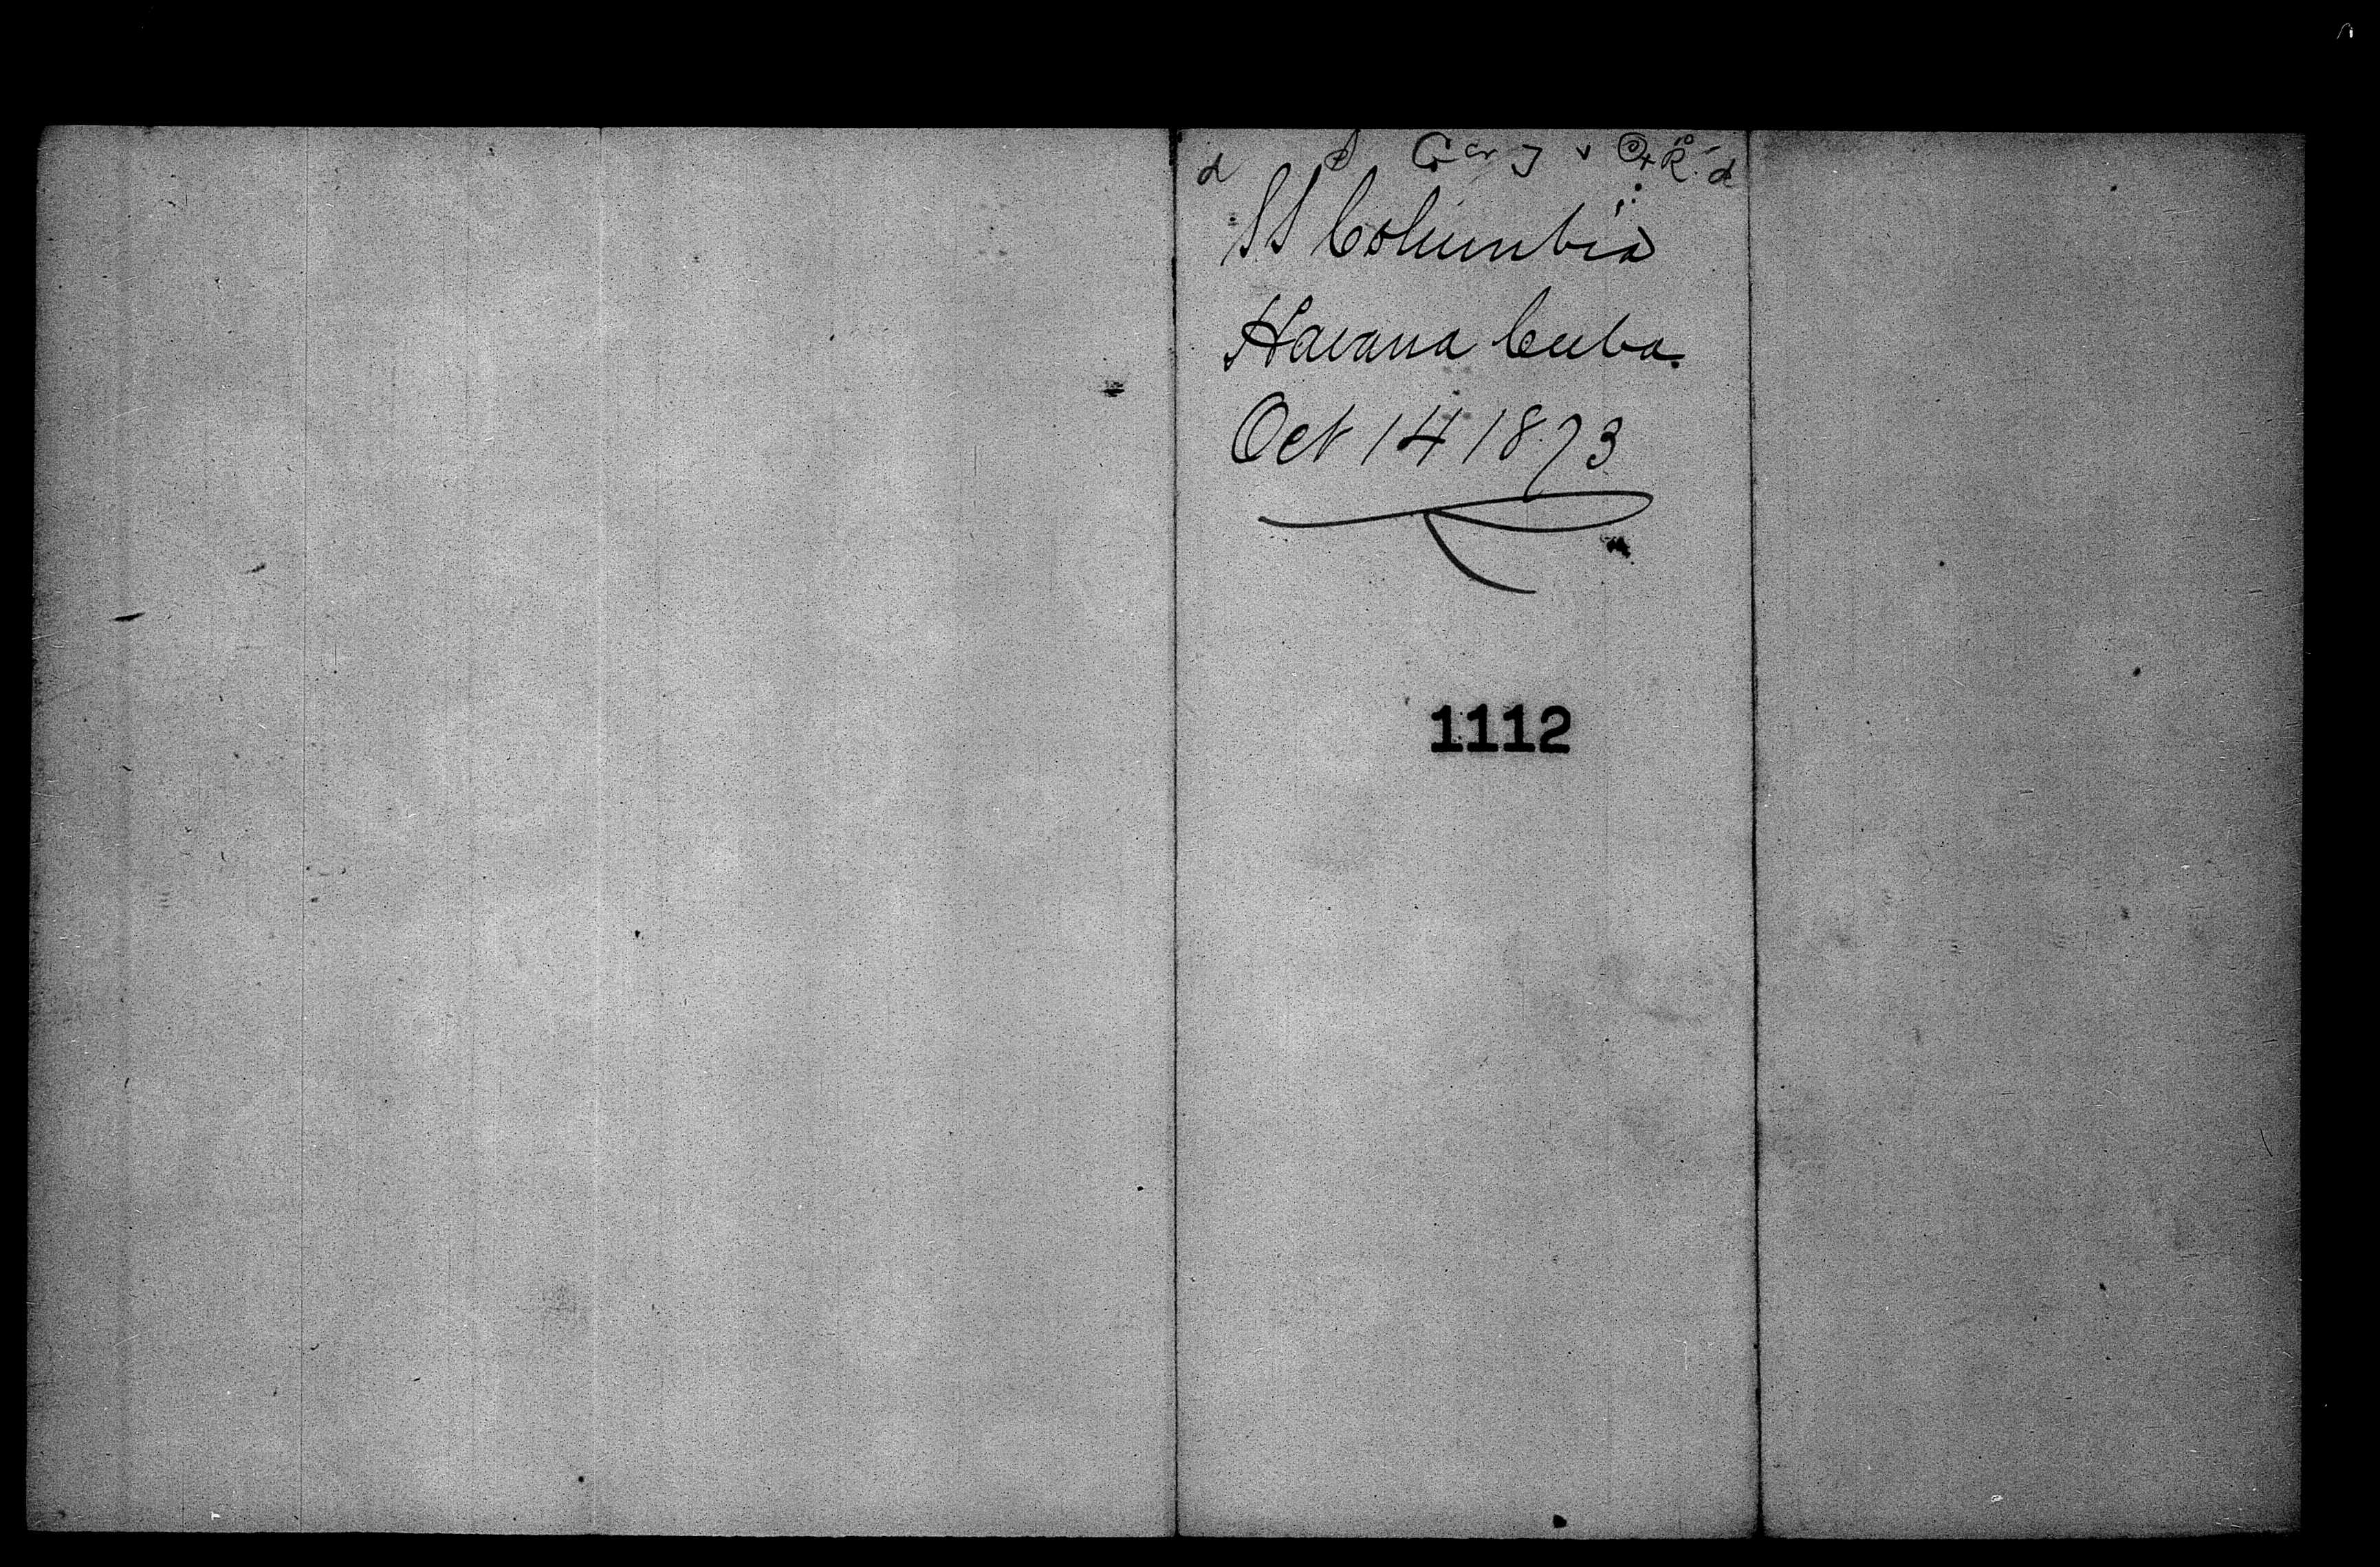 SS Columbia
Havana Cuba.
Oct 14 1873
1112